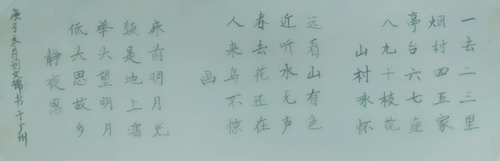 一去二三里
烟村四五家
亭台六七座
八九十枝花
山村咏怀
远看山有色
近听水无声
春去花还在
人来鸟不惊
画
床前明月光
疑是地上霜
举头望明月
低头思故乡
静夜思
庚子冬月刘文锦书于广州